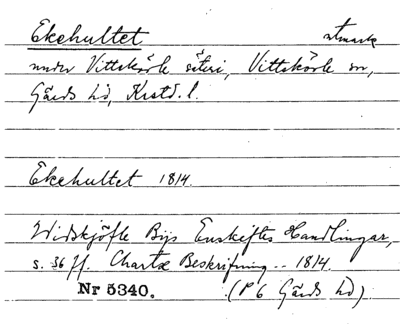 Ekehultet utmark
under Vittskövle säteri, Vittskövle sn,
Gärds hd, Krstd. l.
Ekehultet 1814.
Widskjöfle Bys Enskiftes Handlingar,
s. 36 ff. Chartæ Beskrifning -- 1814.
Nr 5340. (P 6 Gärds hd)